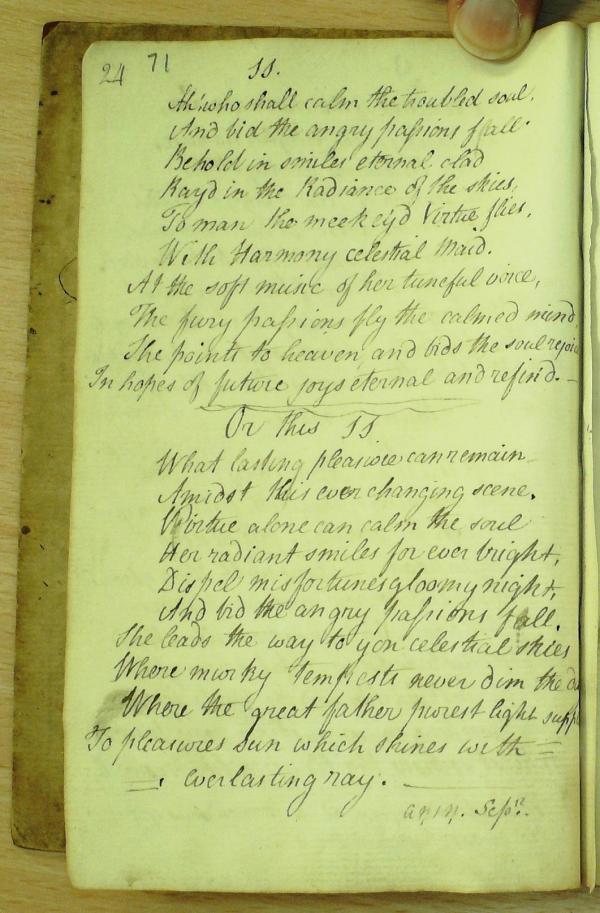 24 71
11.
Ah! who shall calm the troubled soul,
And bid the angry passions fall.
Behold in smiles eternal clad
Rayd in the Radiance of the skies,
To man the meek ey'd Virtue flies,
With Harmony celestial Maid.
At the soft music of her tuneful voice,
The fury passions fly the calmed mind,
She points to heaven, and bids the soul rejoi
In hopes of future joys eternal and refin'd.—
Or this 11
What lasting pleasure can remain
Amidst this ever changing scene.
Virtue alone can calm the soul
Her radiant smiles for ever bright,
Dispel misfortunes gloomy night,
And bid the angry passions fall.
She leads the way to yon celestial skies
Where murky tempests never dim the da
Where the great father purest light suppl
To pleasures sun which shines with =
=, everlasting ray. —
Sepr.